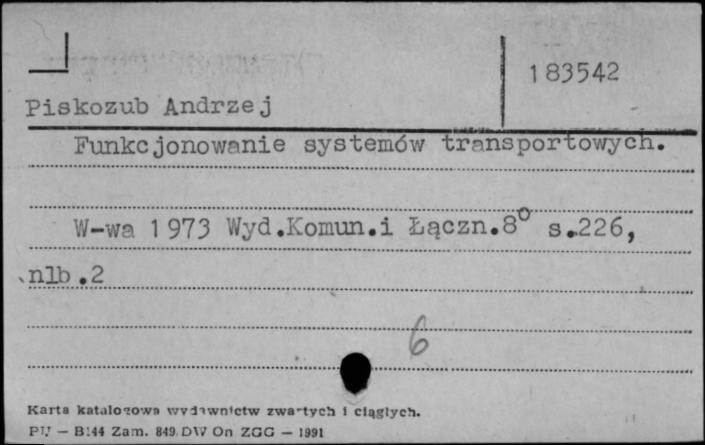 183542
Piskozub Andrzej
Funkcjonowanie systemów transportowych.
W-wa 1973 Wyd.Komun.i Łączn.8° s.226,
nlb.2
6
Karta katalogowa wydawnictw zwartych i ciągłych.
PU — B144 Zam. 849. DW On ZGG — 1991